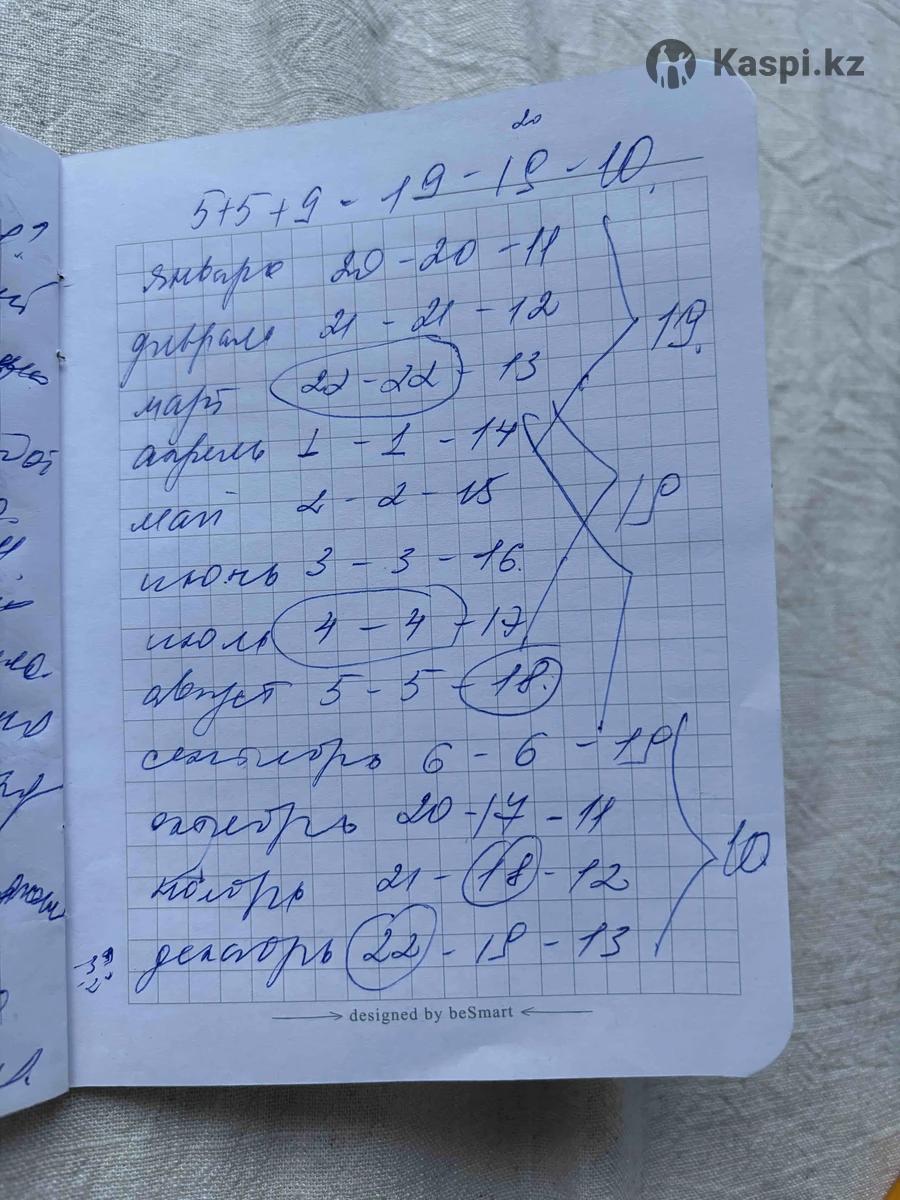 Kaspi.kz
20
5+5+9 - 19 - 19 - 10.
январь 20 - 20 - 11
февраль 21 - 21 - 12
19.
март 22 - 22 - 13
апрель 1 - 1 - 14
май 2 - 2 - 15
19
июнь 3 - 3 - 16.
июль 4 - 4 - 17
август 5 - 5 - 18.
сентябрь 6 - 6 - 19
октябрь 20 - 17 - 11
10
ноябрь 21 - 18 - 12
декабрь 22 - 19 - 13
designed by beSmart